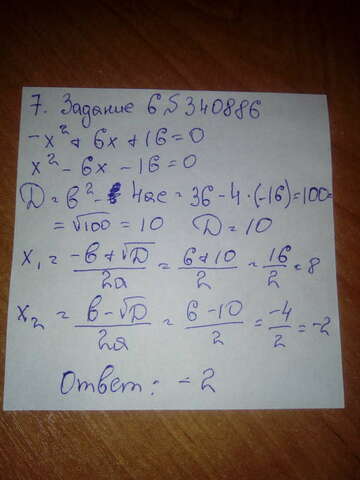 7. Задание 6 № 340886
-x² + 6x + 16 = 0
x² - 6x - 16 = 0
D = b² - 4ac = 36 - 4 · (-16) = 100 =
= √100 = 10 D = 10
x₁ = -b + √D / 2a = 6 + 10 / 2 = 16 / 2 = 8
x₂ = b - √D / 2a = 6 - 10 / 2 = -4 / 2 = -2
Ответ: -2